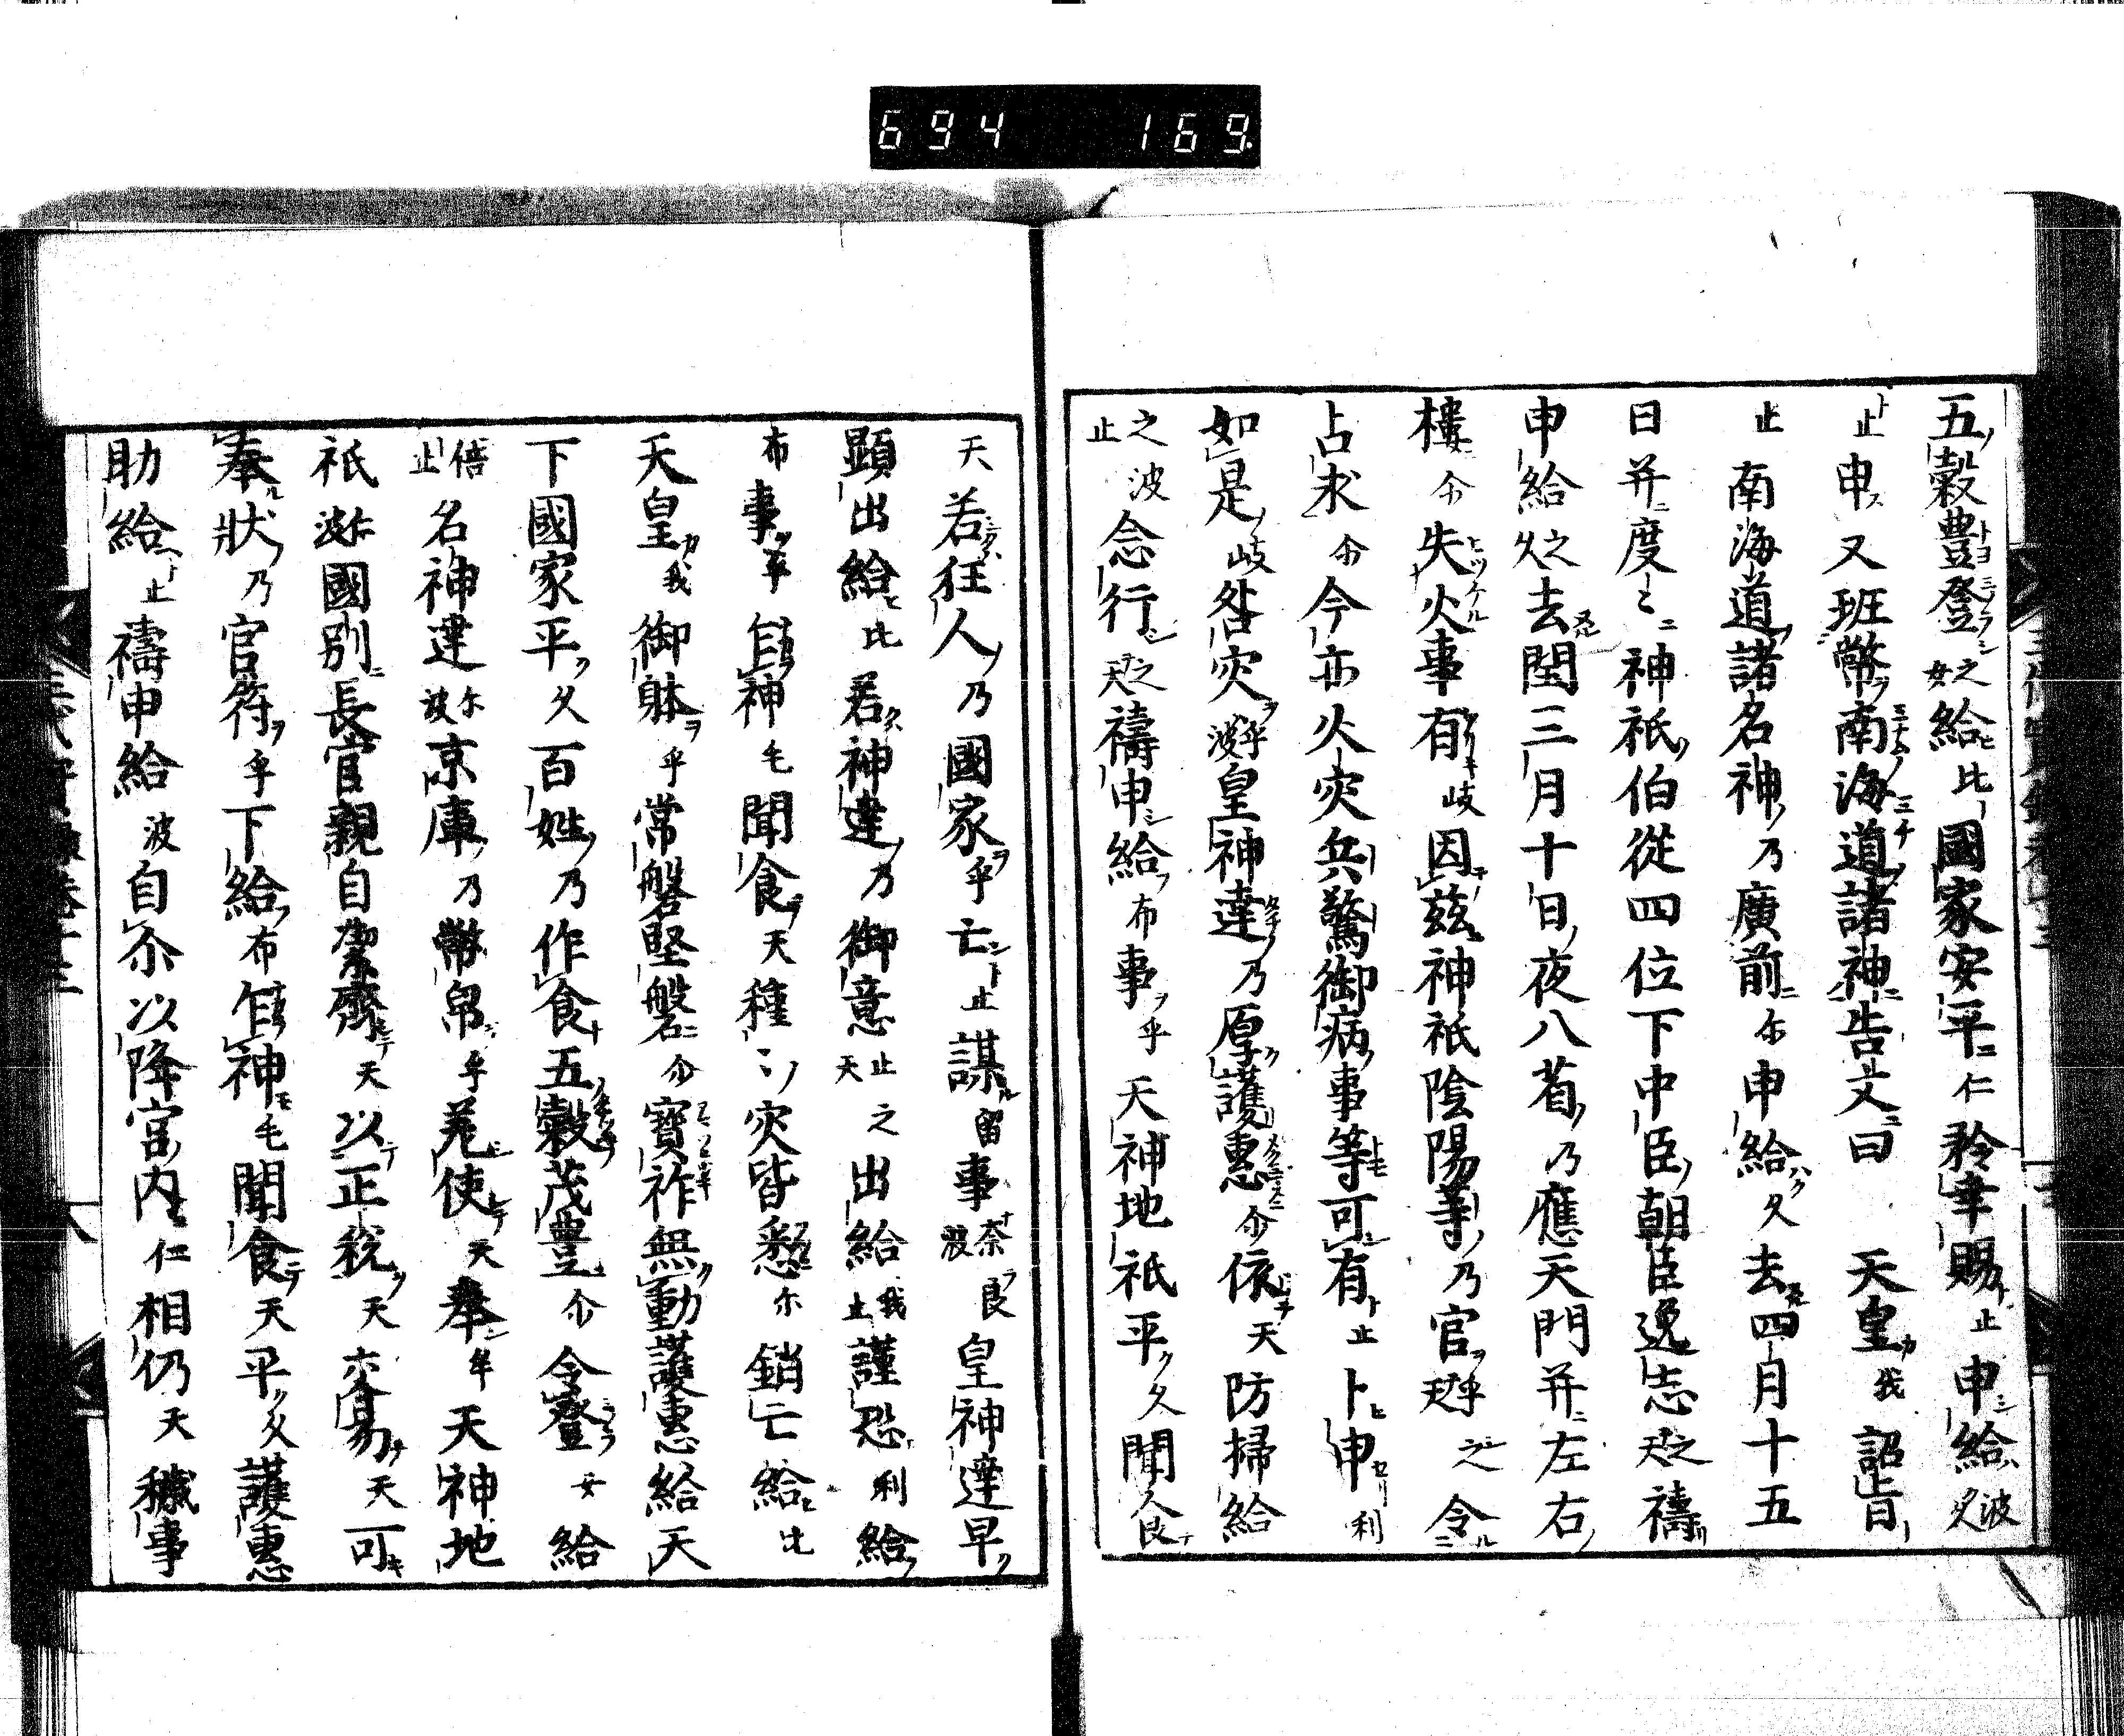 694 169
五穀豊登之女給比國家安平仁矜幸賜止申給波久
止申又班幣南海道諸神告文曰 天皇我詔旨
止南海道諸名神乃廣前尓申給久去四月十五
日并度〻神祇伯從四位下中臣朝臣逸志之天禱
申給之久去閏三月十日夜八省乃應天門并左右
樓尓失火事有岐因茲神祇陰陽等乃官乎天之令
占求尓今亦火灾兵驚御病事等可有止卜申利
如是岐咎灾乎波皇神達乃厚護惠尓依天防掃給
之止波念行之天禱申給布事乎天神地祇平久聞食
天若狂人乃國家乎亡止謀留事奈波良皇神達早
顕出給比若神達乃御意止天之出給我止謹恐利給
布事乎乍神毛聞食天種〻灾皆悉尓銷亡給比
天皇我御躰乎常磐堅磐尓寳祚無動護惠給天
下國家平久百姓乃作食五穀茂豊尓令登女給
倍止名神達尓波京庫乃幣帛乎差使天奉牟天神地
祇尓波國別長官親自潔齋天以正税天交易天可
奉狀乃官符乎下給布乍神毛聞食天平久護惠
助給止禱申給波自尓以降宮内仁相仍天穢事